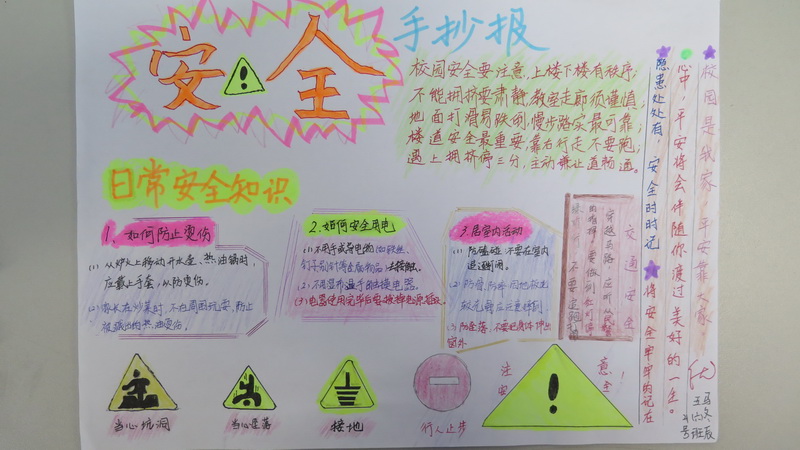 安全
手抄报
校园安全要注意,上楼下楼有秩序;
不能拥挤要肃静,教室走廊须谨慎,
地面打滑易跌倒,慢步踏实最可靠;
楼道安全最重要,靠右行走不要跑;
遇上拥挤停三分,主动谦让道畅通。
日常安全知识
1、如何防止烫伤
(1) 从炉火上移动开水壶、热油锅时,
应戴上手套,以防烫伤。
(2) 家长在炒菜时,不在周围玩耍,防止
被溅出的热油烫伤。
2.如何安全用电
(1)不用手或导电物(如铁丝、
钉子、别针等金属制品)去接触、
(2)不用湿布湿手触摸电器。
(3)电器使用完毕后要拔掉电源插头。
3.居室内活动
(1) 防磕碰,不要在室内
追逐打闹。
(3) 防坠落,不要把身体探出
窗外
交通安全
穿越马路,
当心坑洞
当心坠落
接地
行人止步
注意
安全
校园是我家,平安靠大家
心中,平安将会伴随你渡过美好的一生。
隐患处处有,安全时时记
将安全牢牢的记在
优